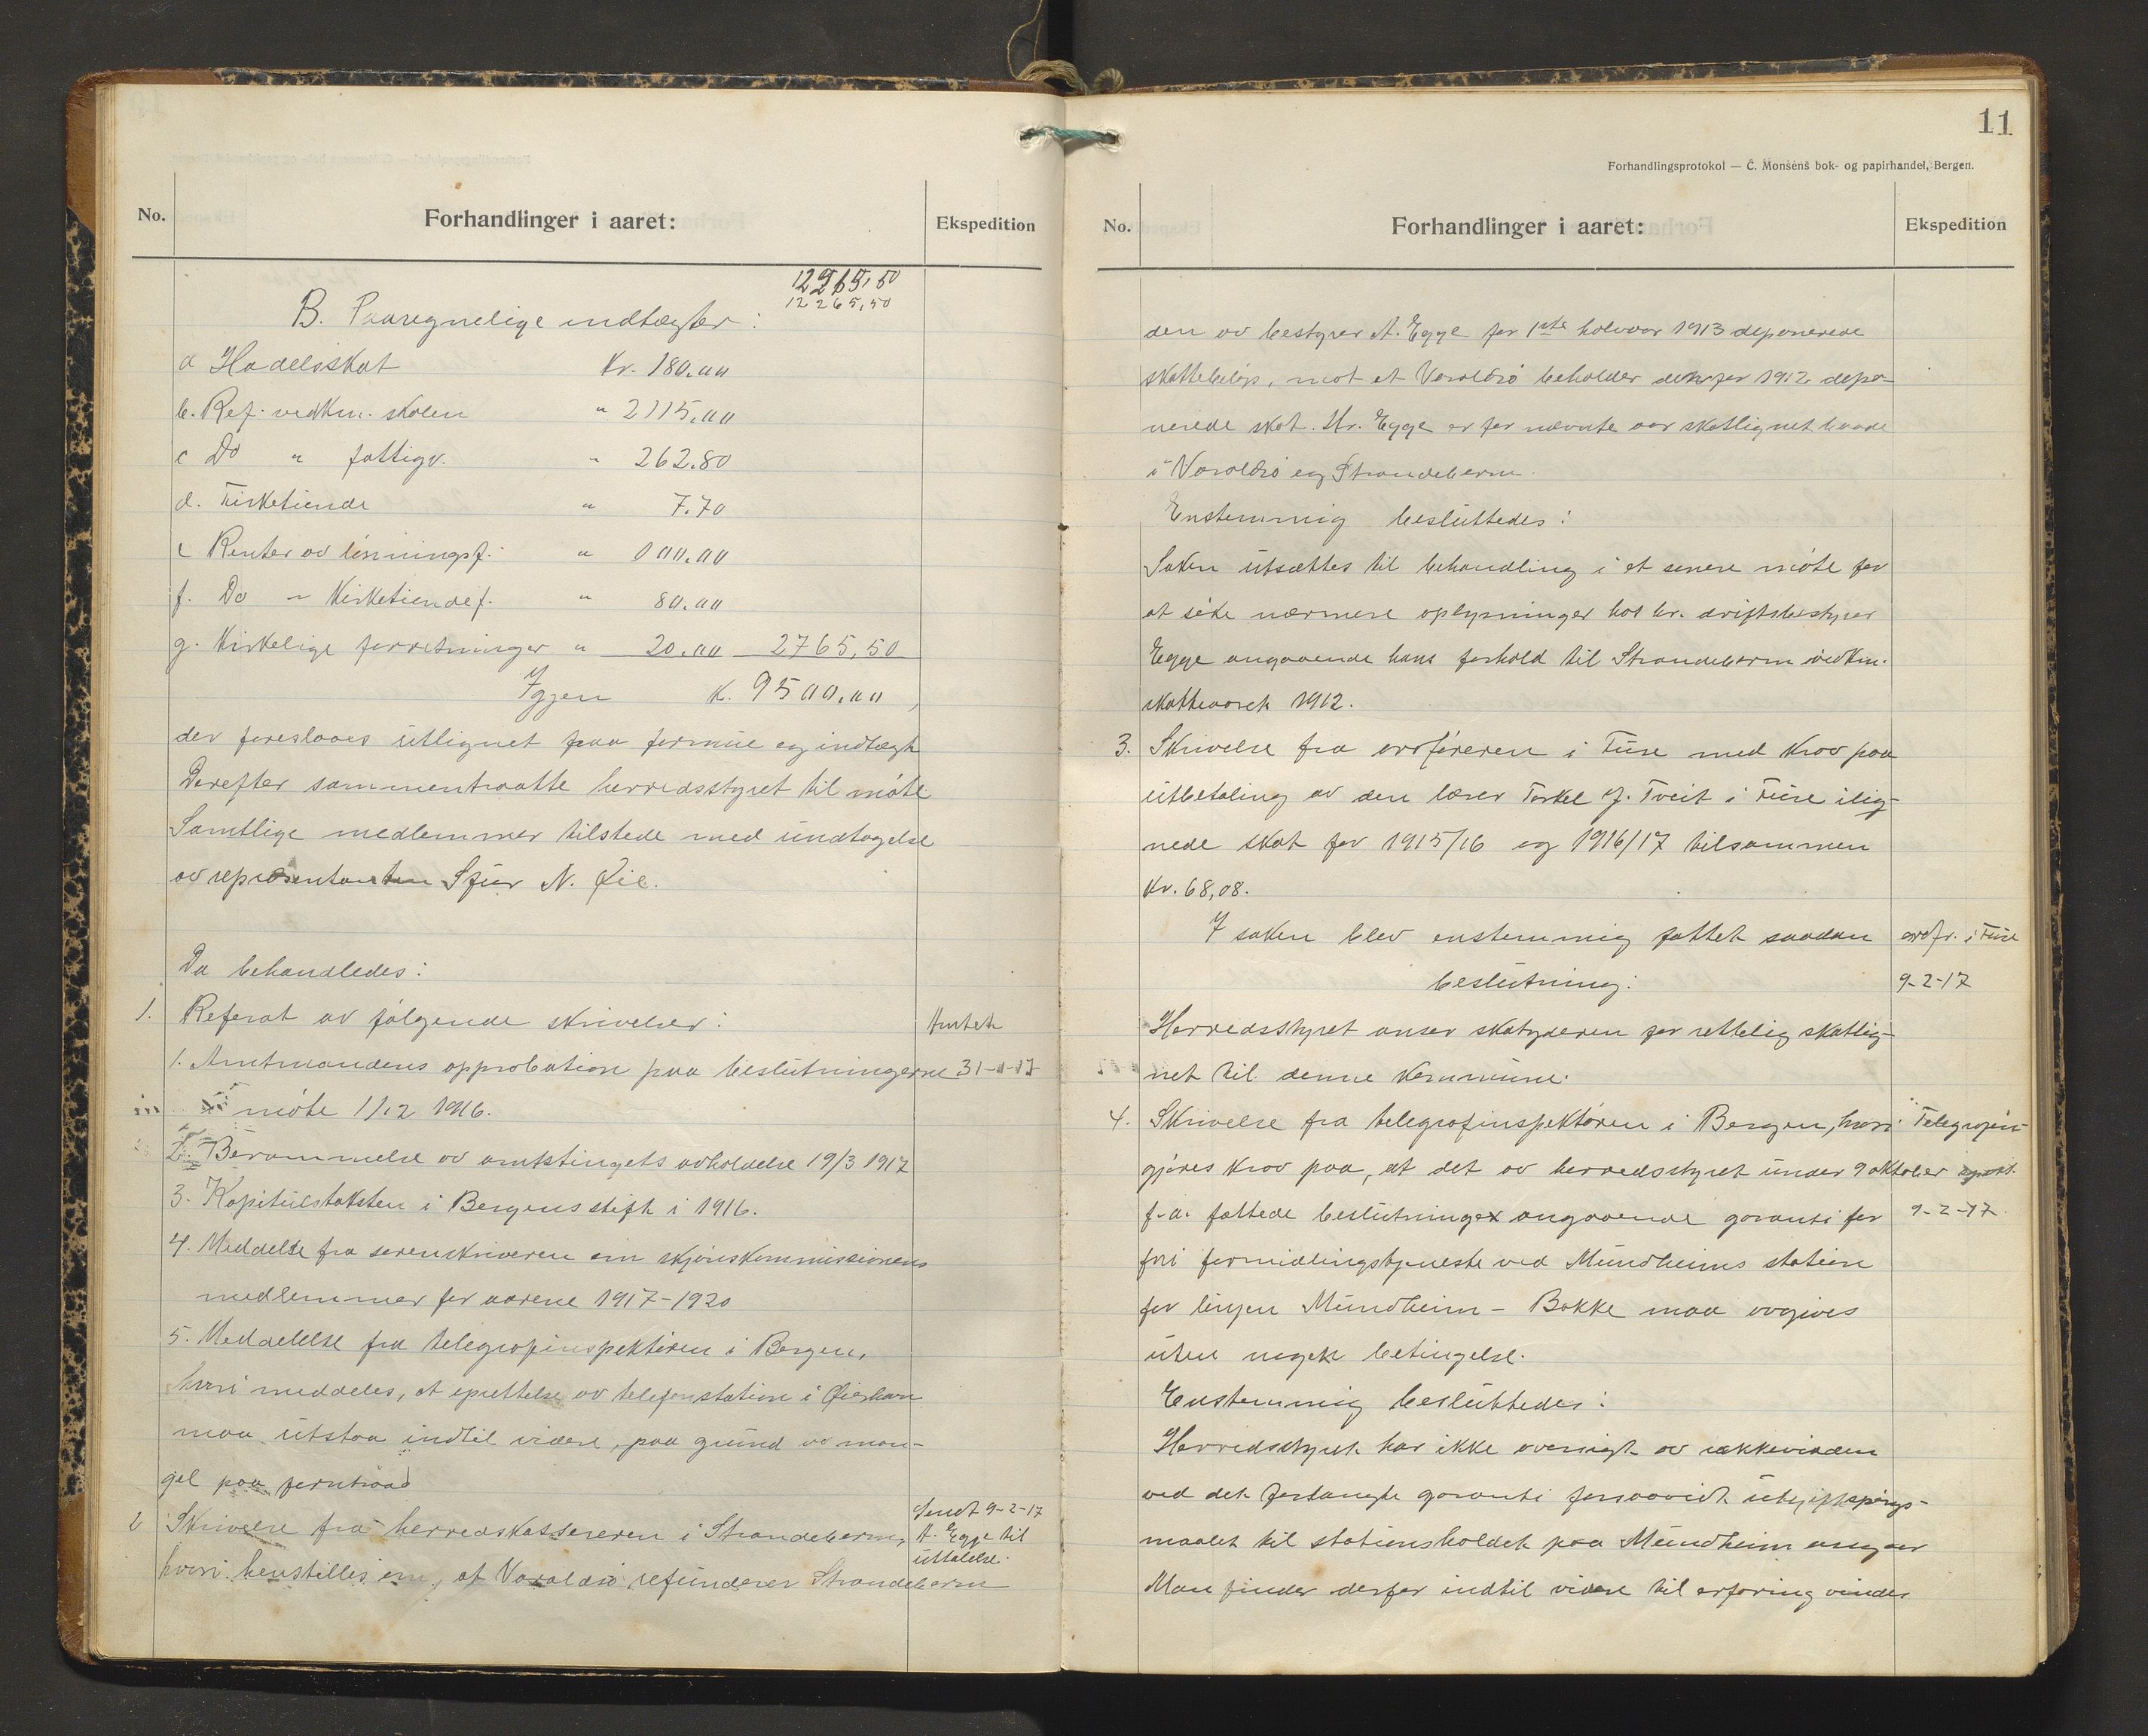 No.
Forhandlinger i aaret:
Ekspedition
12265,50
12265,50
B. Paaregnelige indtægter:
a Hadelsskat Kr. 180.00
b. Ref. vedkm. skolen " 2115.00
c Do " fattigv. " 262.80
d. Kirketiende " 7.70
e Renter av lønningsf. " 100.00
f. Do " Kirketiendef. " 80.00
g. Kirkelige forretninger " 20.00 2765,50
Igjen K. 9500.00,
der foreslaaes utlignet paa formue og indtægt
Derefter sammentraatte herredsstyret til møte.
Samtlige medlemmer tilstede med undtagelse
av repræsentanten Sjur N. Øie.
Da behandledes:
1. Referat av følgende skrivelser:
Amtet
1. Amtmandens approbation paa beslutningerne
31-1-17
i møte 1/12 1916.
2. Berammelse av amtstingets avholdelse 19/3 1917
3. Kapitulstaksten i Bergens stift i 1916.
4. Meddelse fra sorenskriveren om skjønskommissionens
medlemmer for aarene 1917-1920
5. Meddelelse fra telegrafinspektøren i Bergen,
hvori meddeles, at oprettelse av telefonstation i Øierhavn
maa utstaa indtil videre, paa grund av man-
gel paa jerntraad
2 Skrivelse fra herredskassereren i Strandebarm,
hvori henstilles om, at Varaldsø refunderer Strandebarm
Sendt 9-2-17
A. Egge til
uttalelse.
11
Forhandlingsprotokol — C. Monsens bok- og papirhandel, Bergen.
No.
Forhandlinger i aaret:
Ekspedition
den av bestyrer A. Egge for 1ste halvaar 1913 deponerede
skattebeløp, mot at Varaldsø beholder den for 1912 depo-
nerede skat. Hr. Egge er for nævnte aar skatlignet baade
i Varaldsø og Strandebarm.
Enstemmig besluttedes:
Saken utsættes til behandling i et senere møte for
at søke nærmere oplysninger hos hr. driftsbestyrer
Egge angaaende hans forhold til Strandebarm vedkm.
skatteaaret 1912.
3. Skrivelse fra ordføreren i Fuse med krav paa
utbetaling av den lærer Torkel J. Tveit i Fuse ilig-
nede skat for 1915/16 og 1916/17 tilsammen
Kr. 68,08.
I saken blev enstemmig fattet saadan
beslutning:
ordf. i Fuse
9-2-17
Herredsstyret anser skatyderen for rettelig skatlig-
net til denne kommune.
4. Skrivelse fra telegrafinspektøren i Bergen, hvori
Telegrafin-
gjøres krav paa, at det av herredsstyret under 9 oktober
spekt.
f. a. fattede beslutninger angaaende garanti for
9-2-17.
fri formidlingstjeneste ved Mundheims station
for linjen Mundheim - Bakke maa avgives
uten nogen betingelse.
Enstemmig besluttedes:
Herredsstyret har ikke oversigt av rækkevidden
ved det forlangte garanti forsaavidt utgiftspørgs-
maalet til stationsholdet paa Mundheim angaar
Man finder derfor indtil videre til erfaring vindes